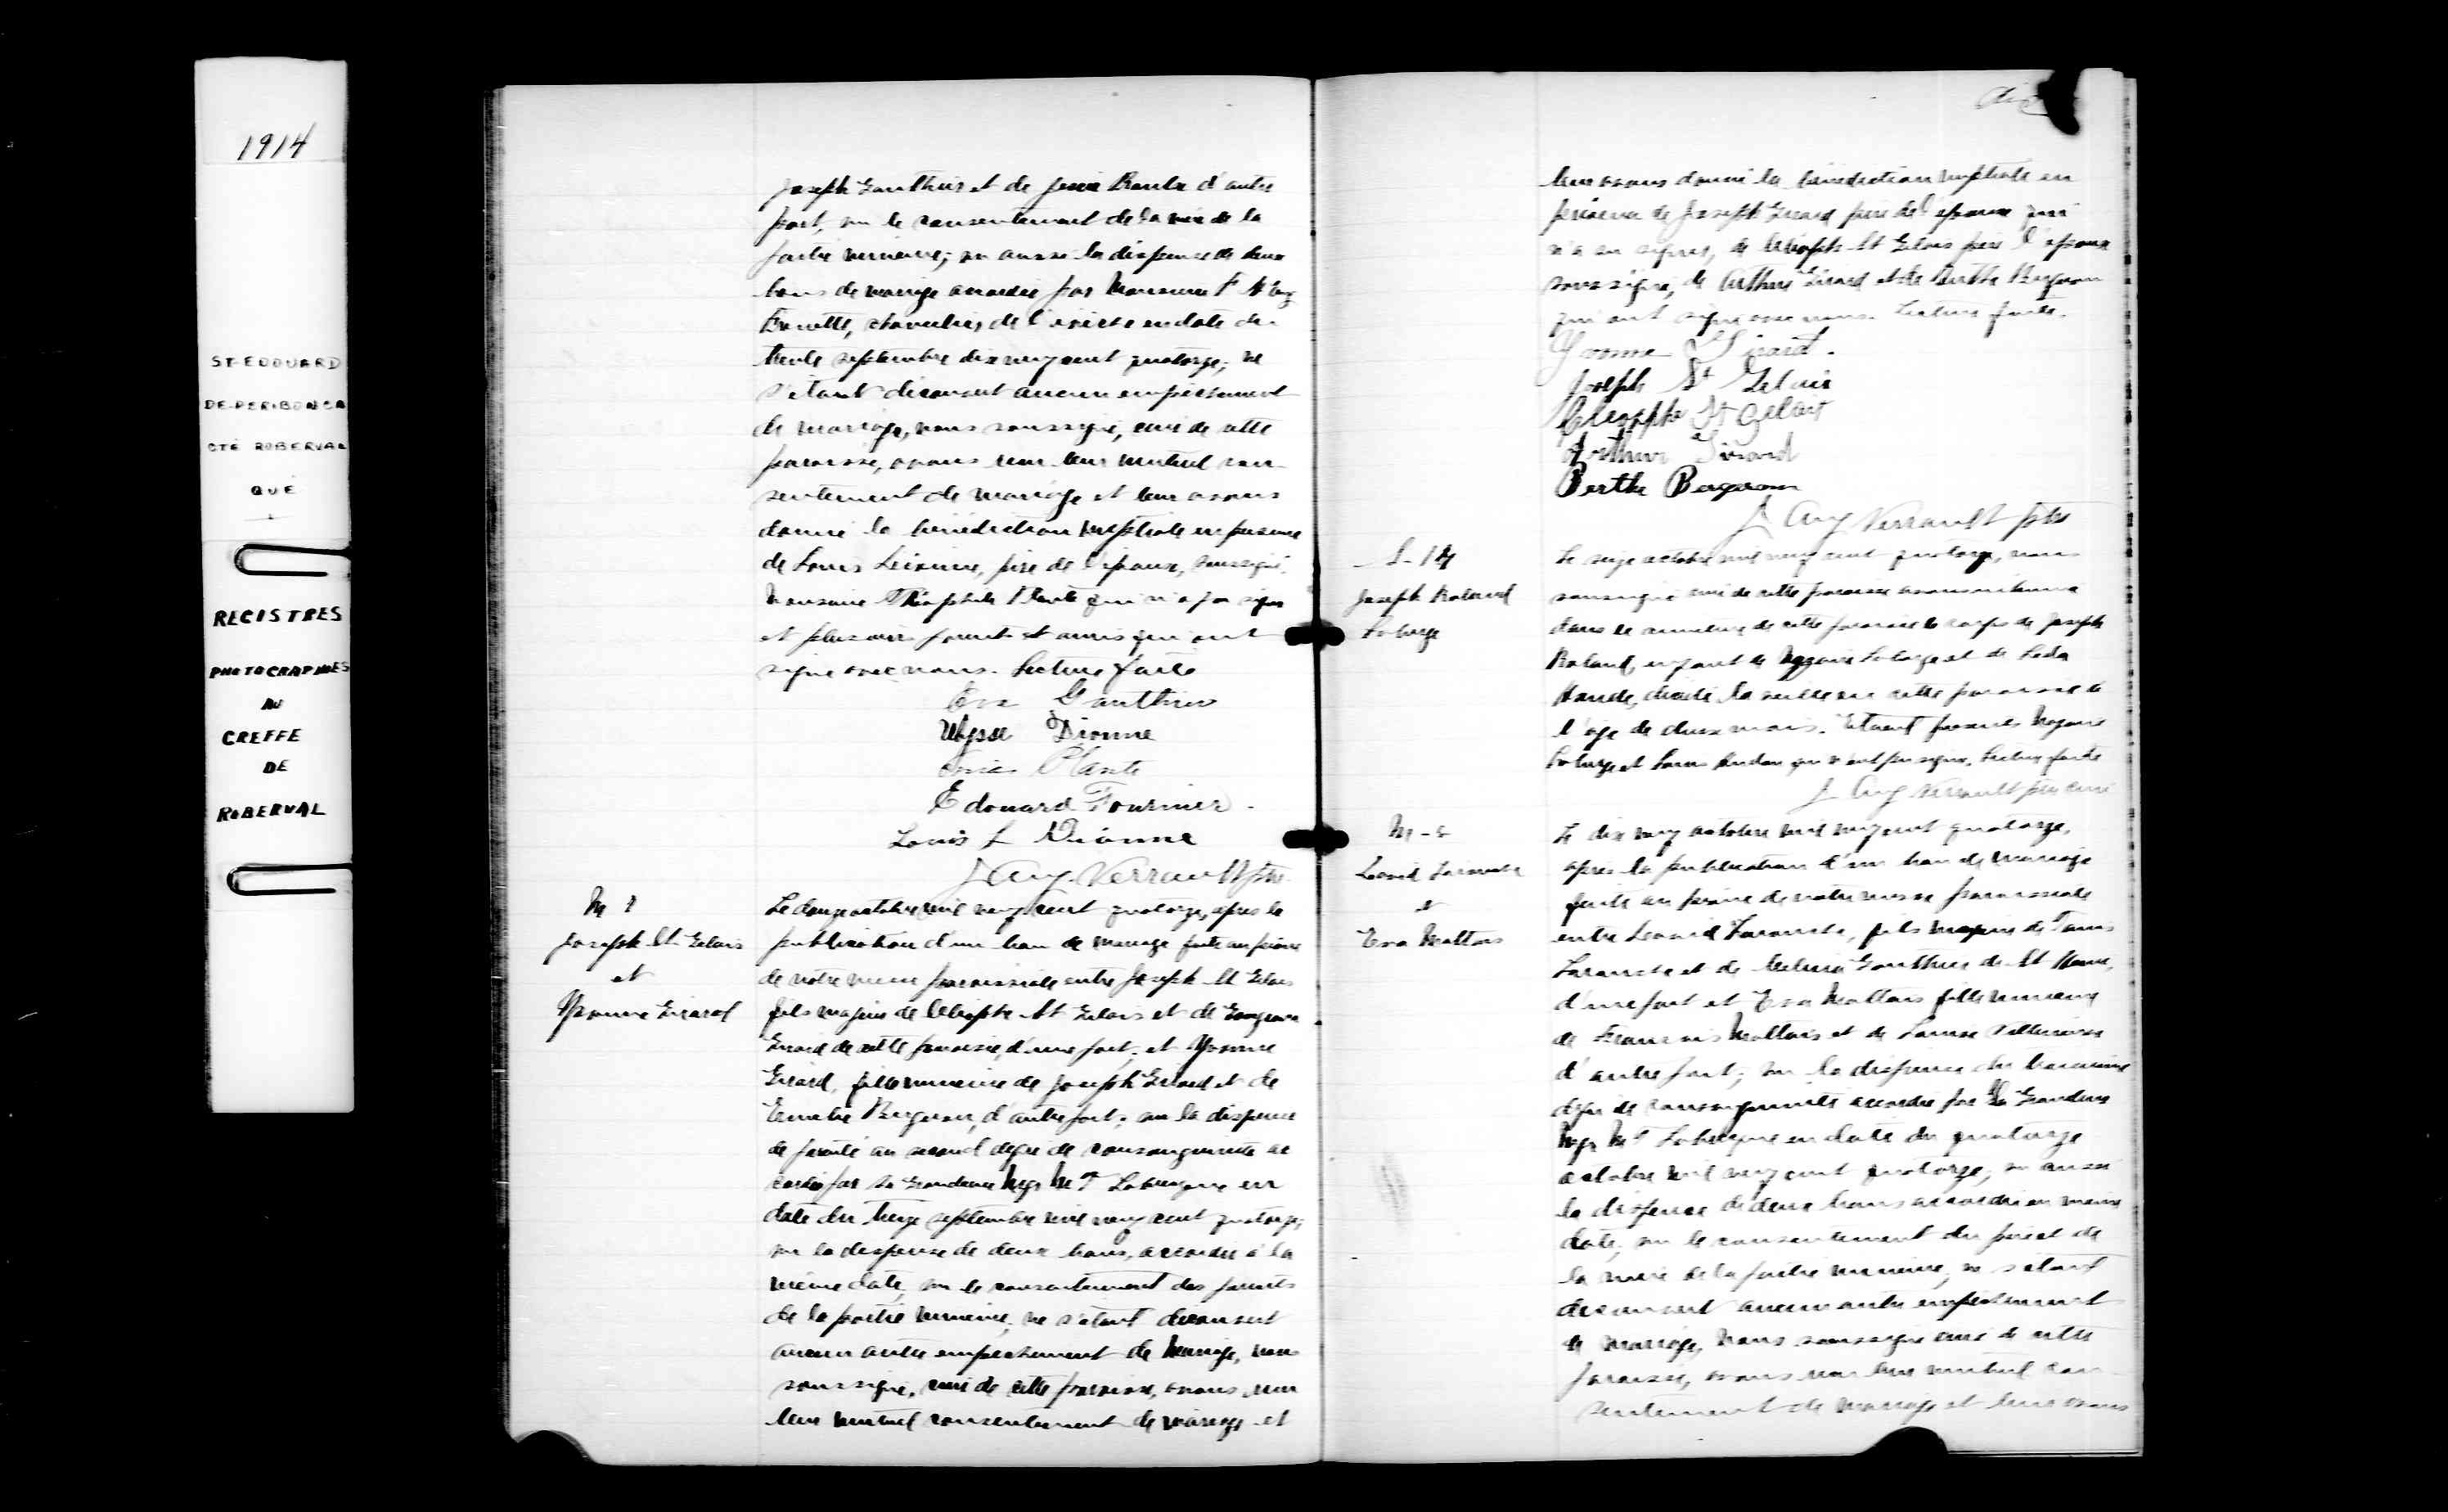 1914
ST-EDOUARD
DE-PERIBONCA
CTÉ ROBERVAL
QUÉ
REGISTRES
PHOTOGRAPHIES
AU
GREFFE
DE
ROBERVAL
Joseph Gauthier et de d'autre
part, vu le consentement de la mère de la
partie mineure; vu aussi la dispense de deux
bans de mariage accordée par Monsieur F
chancelier de l'évêché en date du
trente septembre dix neuf cent quatorze; ne
s'étant découvert aucun empêchement
de mariage, nous soussigné, curé de cette
paroisse, avons reçu leur mutuel con-
sentement de mariage et leur avons
donné la bénédiction nuptiale en présence
de Louis père de l'époux, soussigné,
Théophile Plante qui n'a pu signer
et plusieurs parents et amis qui ont
signé avec nous. Lecture faite
Eva Gauthier
Ulysse Dionne
Plante
Edouard Fournier.
Louis L Dionne
J Aug. Verreault ptre.
M
Joseph St Gelais
et
Yvonne Girard
Le douze octobre mil neuf cent quatorze, après la
publication d'un ban de mariage faite au prône
de notre messe paroissiale entre Joseph St Gelais
fils majeur de Cléophe St Gelais et de
Girard de cette paroisse, d'une part, et Yvonne
Girard, fille mineure de Joseph Girard et de
Bergeron, d'autre part; vu la dispense
de parenté au second degré de consanguinité ac
cordée par Sa Grandeur Mgr M T Labrecque en
date du treize septembre mil neuf cent quatorze;
vu la dispense de deux bans, accordée à la
même date, vu le consentement des parents
de la partie mineure, ne s'étant découvert
aucun autre empêchement de mariage, nous
soussigné, curé de cette paroisse, avons reçu
leur mutuel consentement de mariage et
leur avons donné la bénédiction nuptiale en
présence de Joseph Girard père de l'épouse qui
n'a su signer, de Cléophe St Gelais père l'époux
soussigné, de Arthur Girard et de Berthe Bergeron
qui ont signé avec nous. Lecture faite.
Yvonne Girard.
Joseph St Gelais
Cléophe St Gelais
Arthur Girard
Berthe Bergeron
J Aug Verreault ptre
S-14
Joseph Roland
Laberge
Le seize octobre mil neuf cent quatorze, nous
soussigné curé de cette paroisse avons inhumé
dans le cimetière de cette paroisse le corps de Joseph
Roland, enfant de Nazaire Laberge et de Leda
décédé la veille en cette paroisse à
l'âge de deux mois. Etaient présents Nazaire
Laberge et Louis qui n'ont pu signer. Lecture faite
J Aug Verreault ptre curé
M-
et
Eva Maltais
Le dix neuf octobre mil neuf cent quatorze,
après la publication d'un ban de mariage
faite au prône de notre messe paroissiale
entre fils majeur de
et de Gauthier de St
d'une part et Eva Maltais fille mineure
de François Maltais et de Louise
d'autre part; vu la dispense du troisième
degré de consanguinité accordée par Sa Grandeur
Mgr M T Labrecque en date du quatorze
octobre mil neuf cent quatorze, vu aussi
la dispense de deux bans accordée en même
date, vu le consentement du père et de
la mère de la partie mineure, ne s'étant
découvert aucun autre empêchement
de mariage, nous soussigné curé de cette
paroisse, avons reçu leur mutuel con-
sentement de mariage et leur avons